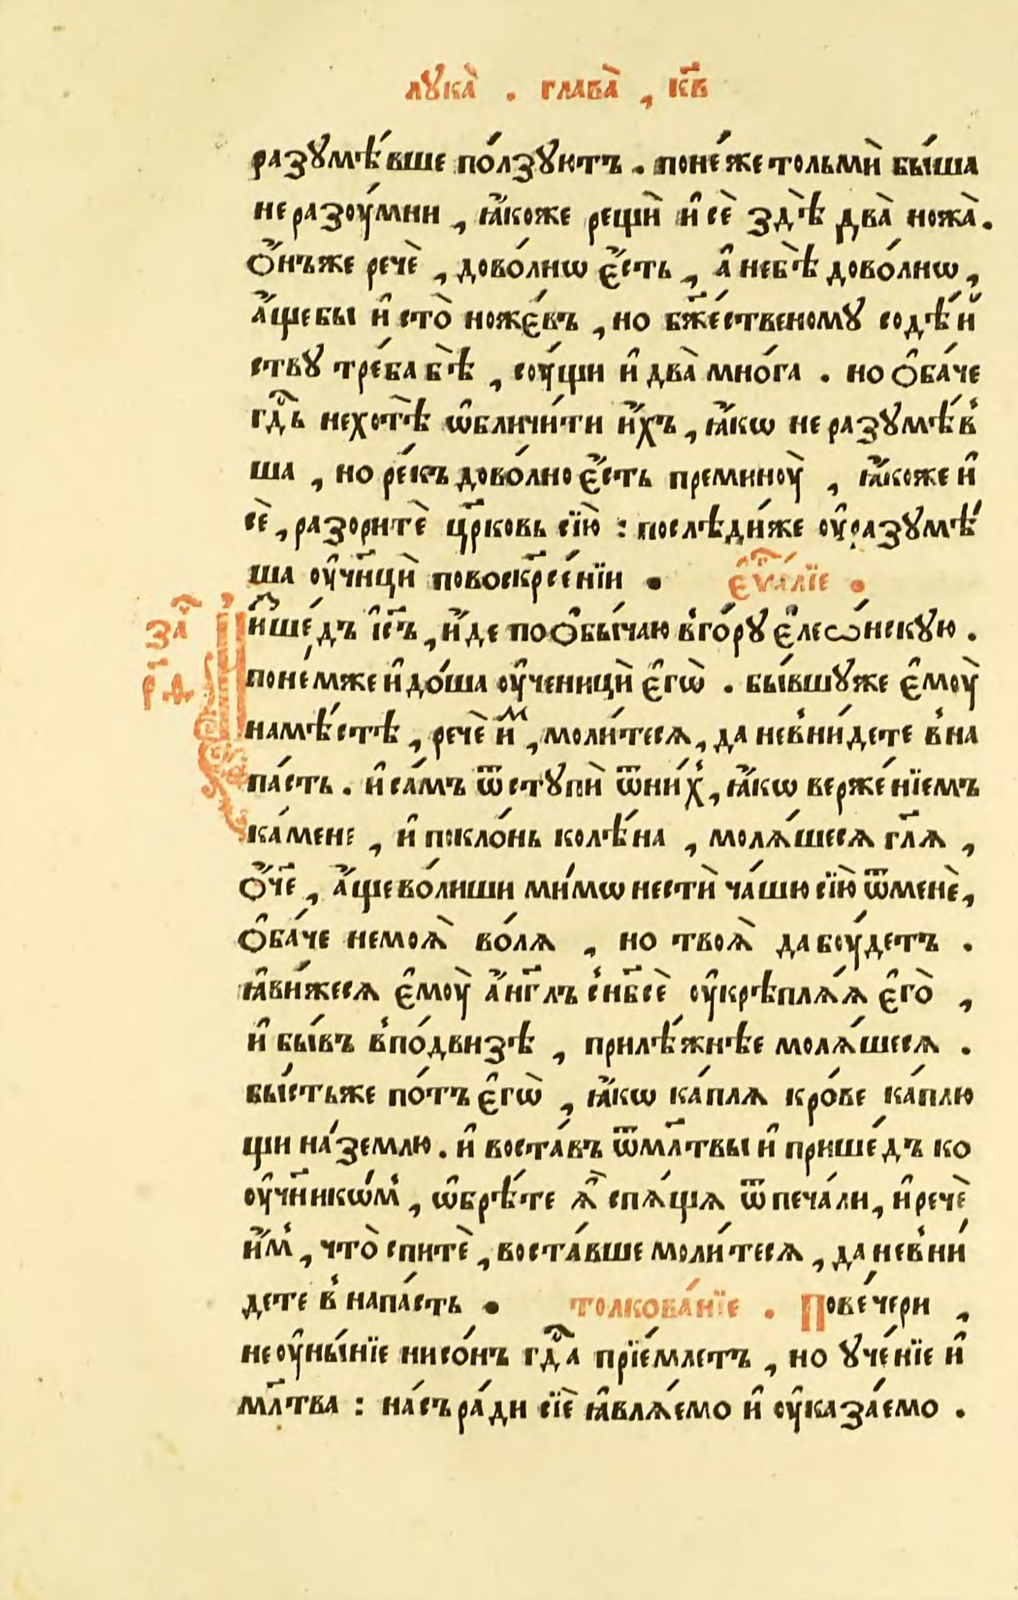 лꙋка̀ . глава̀ , к҃в
разꙋмѣ́вше по́лзꙋютъ . поне́же тольмѝ бы́ша
неразоу́мни , ꙗ҆́коже рещѝ и҆ сѐ здѣ̀ два̀ ножа̀.
Ѻ҆́нъже речѐ , дово́лнѡ є҆́сть , а҆ небѣ̀ дово́лнѡ ,
а҆́щебы и҆ сто̀ ноже́въ , но бж҃е́ственомꙋ содѣ́й
ствꙋ тре́ба бѣ̀ , соу́щи и҆ два̀ мно́га . но ѻ҆ба́че
гдⷭ҇ь нехотѣ̀ ѡ҆бличи́ти и҆́хъ , ꙗ҆́кѡ не разꙋмѣ́в
ша , но ре́къ дово́лно є҆́сть преминоу̀ , ꙗ҆́коже и҆
сѐ , разоритѐ цр҃ковь сїю̀ : послѣди́же оу҆разꙋмѣ́
ша оу҆чн҃цы̀ повоскр҃се́нїи . є҆ѵⷢ҇а́лїе .
за҆ И҆зше́дъ і҆с҃ъ , и҆́де поѻбы́чаю в̾го́рꙋ є҆леѡ́нскꙋю .
р҃ѳ понемже и҆ до́ша оу҆ченицы̀ є҆гѡ̀ . бы́вшꙋже є҆моу̀
намѣ́стѣ , речѐ и҆̀ⷨ , моли́теся , да нев̾ни́дете в̾на
па́сть . и҆ са́мъ ѿстꙋпѝ ѿни́х̾ , ꙗ҆́кѡ верже́нїемъ
ка́мене , и҆ покло́нь колѣ́на , моля́шеся гл҃я ,
Ѻ҆́ч҃е , а҆́щево́лиши ми́мѡ нестѝ ча́шю сїю̀ ѿменѐ ,
ѻ҆ба́че немоя̀ во́ля , но твоя̀ дабоу́детъ .
ꙗ҆ви́жеся є҆моу̀ а҆́нг҃лъ с̾нб҃сѐ оу҆крѣпля́я є҆го̀ ,
и҆ бы́въ в̾по́двизѣ , прилѣ́жнѣе моля́шеся .
бы́стьже по́тъ є҆гѡ̀ , ꙗ҆́кѡ ка́пля кро́ве ка́плю
щи на́землю . и҆ воста́въ ѿмл҃твы и҆ прише́дъ ко
оу҆чн҃икѡ́м̾ , ѡ҆брѣ́те я҆̀ спя́щя ѿ печа́ли , и҆ речѐ
и҆́м̾ , что̀ спитѐ , воста́вше моли́теся , да нев̾ни́
дете в̾ напа́сть . толкова́нїе . Пове́чери ,
неоу҆ны́нїе нисо́нъ гдⷭ҇а прїе́млетъ , но ᲂуче́нїе и҆
мл҃тва : на́съ ра́ди сїѐ ꙗ҆вля́емо и҆ оу҆каза́емо .